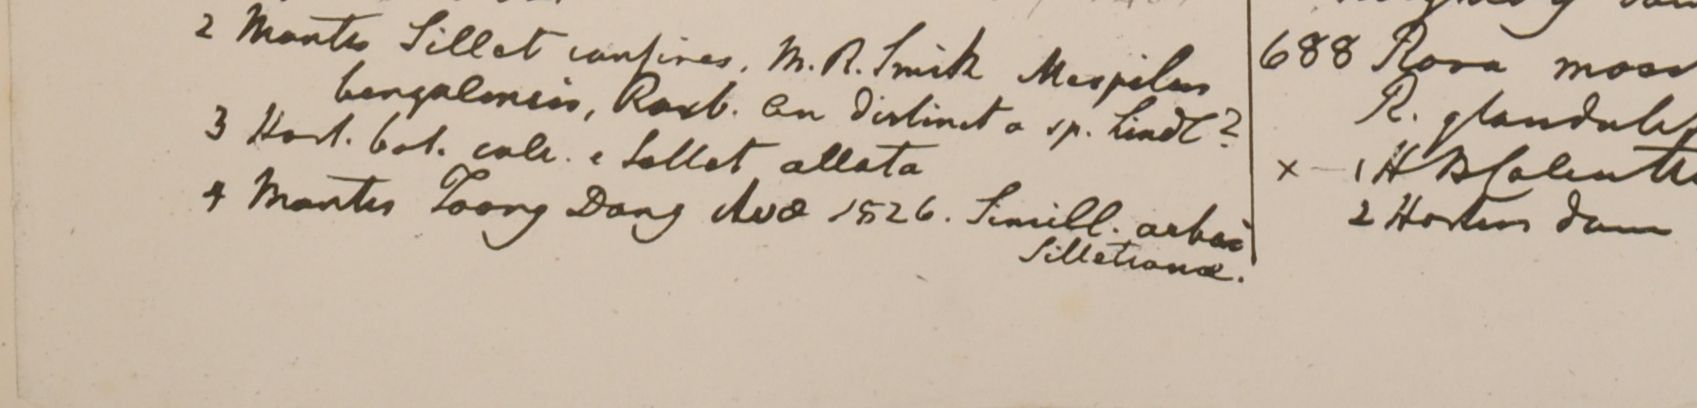 2 Montes Sillet confines. M. R. Smith Mespilus
bengalensis, Roxb. an distincta sp. Lindl?
3 Hort. bot. calc. e Sillet allata
4 Montes Toong Dong Avæ 1826. Simill. arbori
Silletianæ.
688 Rosa mosc
R. glandulif
× 1 H B Calcutt
2 Hortus dom